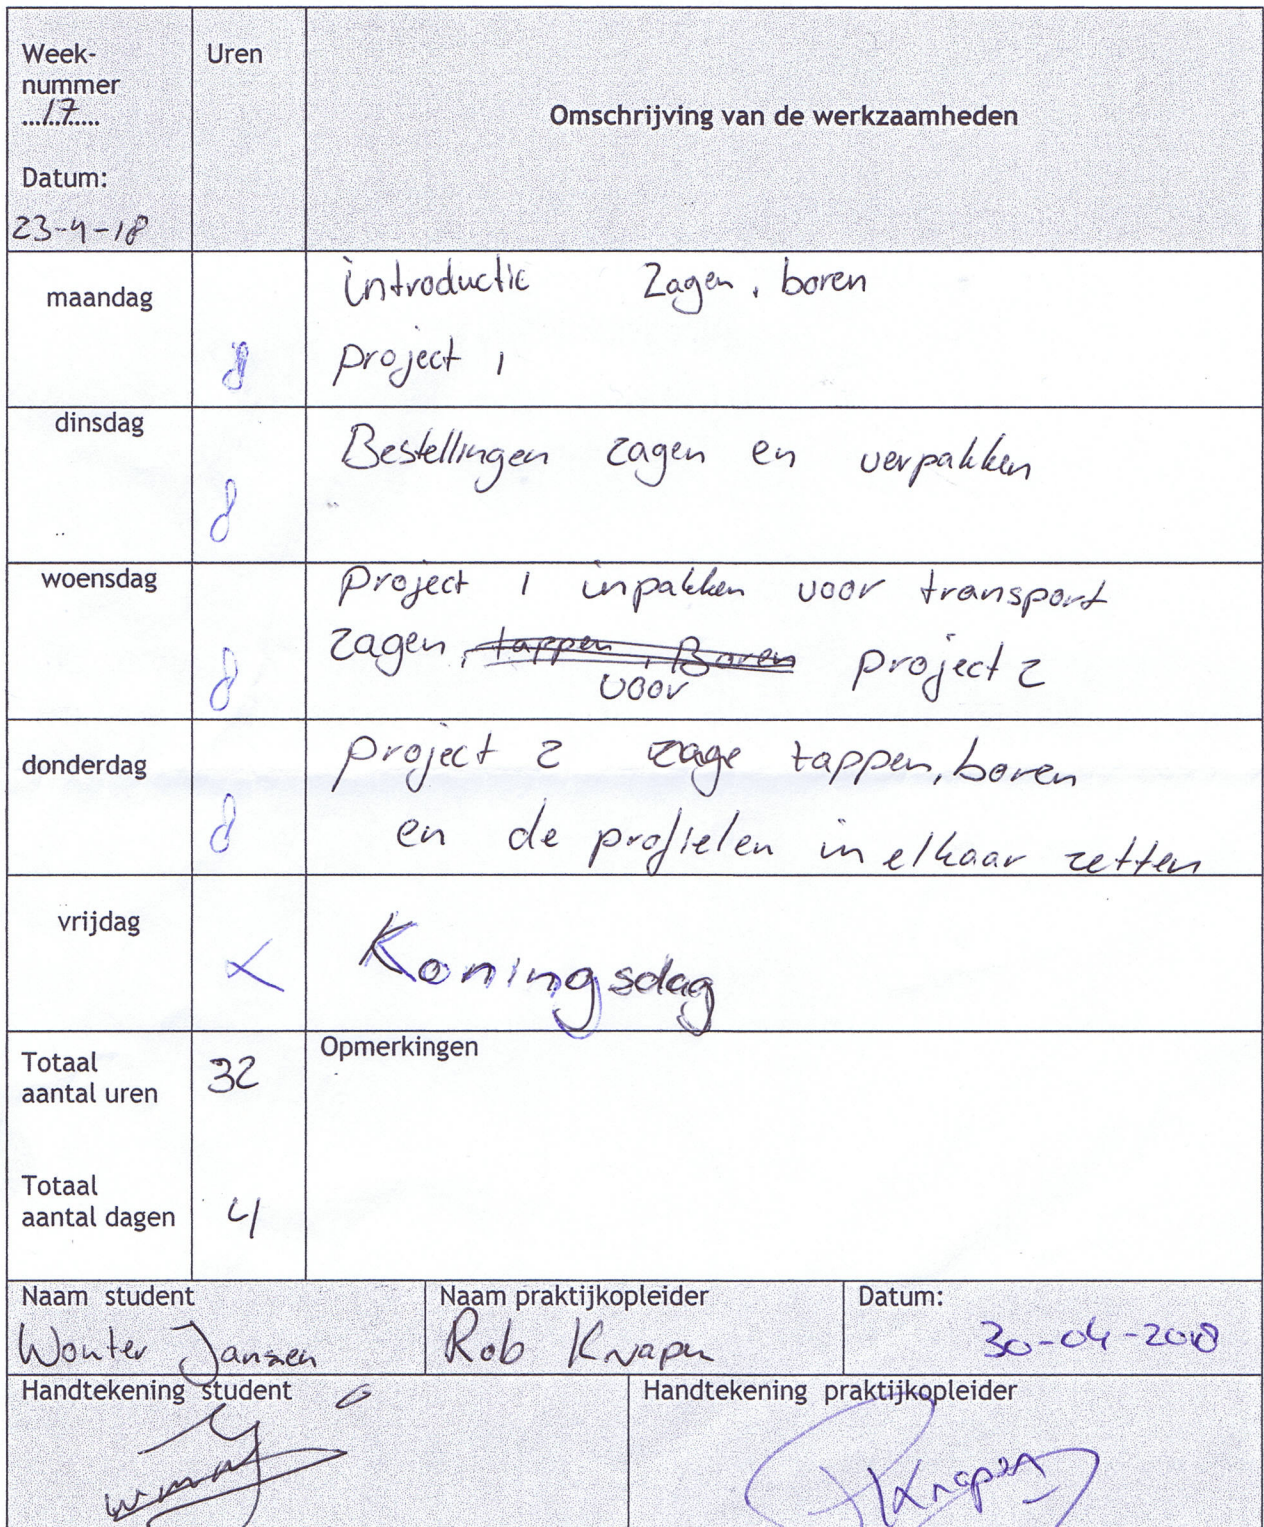 Week-
nummer
17
Datum:
23-4-18
Uren
Omschrijving van de werkzaamheden
maandag
8
introductie zagen, boren
project 1
dinsdag
8
Bestellingen zagen en verpakken
woensdag
8
project 1 inpakken voor transport
zagen, tappen, Boren project 2
voor
donderdag
8
project 2 zage tappen, boren
en de profielen in elkaar zetten
vrijdag
X
Koningsdag
Totaal
aantal uren
32
Totaal
aantal dagen
4
Opmerkingen
Naam student
Wouter Jansen
Naam praktijkopleider
Rob Knapen
Datum:
30-04-2018
Handtekening student
Handtekening praktijkopleider
RKnapen